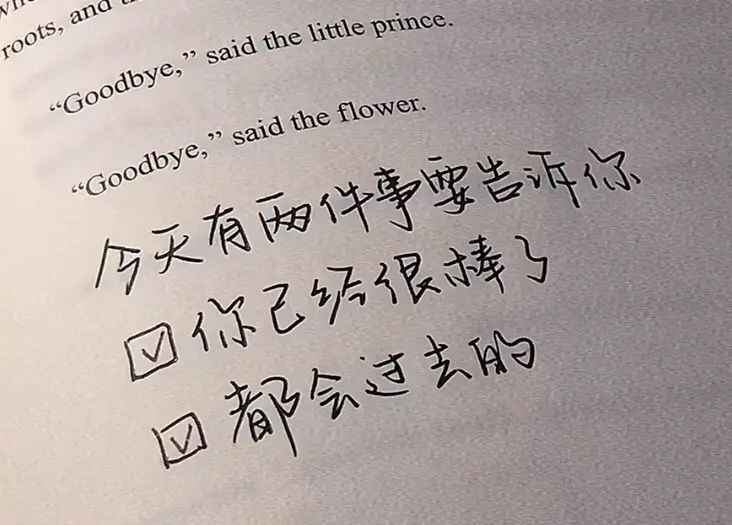 roots, and
“Goodbye,” said the little prince.
“Goodbye,” said the flower.
今天有两件事要告诉你
☑你已经很棒了
☑都会过去的